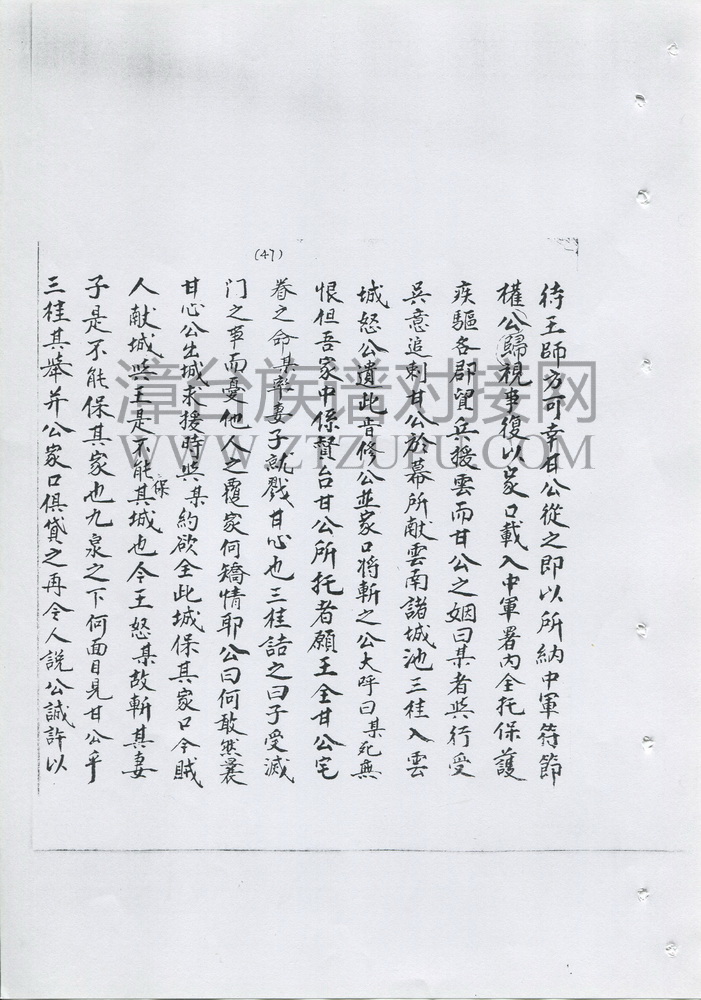 (47)
待王師方可幸甘公從之即以所納中軍符節
權公歸視事復以家口載入中軍署內全托保護
疾驅各郡貿兵援雲而甘公之姻曰某者與行受
吳意追刺甘公於幕所献雲南諸城池三桂入雲
城怒公遺此肯修公並家口将斬之公大呼曰某死無
恨但吾家中係賛台甘公所托者願王全甘公宅
眷之命其率妻子就戮甘心也三桂詰之曰子受滅
門之事而憂他人之覆家何矯情耶公曰何敢然曩
甘心公出城求援時與某約欲全此城保其家口今賊
人献城與王是不能保其城也今王怒某故斬其妻
子是不能保其家也九泉之下何面目見甘公乎
三桂其舉并公家口俱貸之再令人説公誠許以
漳台族谱对接网
WWW.ZTZUPU.COM